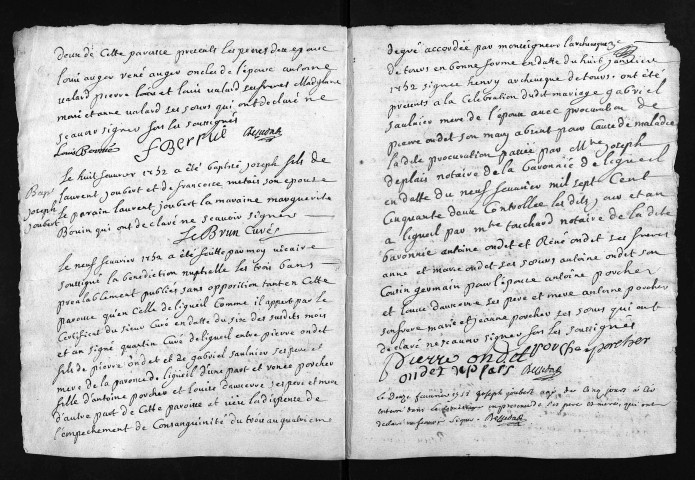 deux de Cette paroisse presents les peres des epoux
Louis auger René auger oncles de l'epouse antoine
valard pierre Louis et Louis valard ses freres Madelaine
marie et anne valard ses sœurs qui ont declaré ne
scavoir signer fors les soussignés
Louis Berrué f Berrué
Bapt joseph joubert
Le huit feuvrier 1752 a été baptisé joseph fils de
laurent joubert et de francoise metais son epouse
Le parain laurent joubert la maraine marguerite
Bouin qui ont declaré ne scavoir signer
Le Brun Curé
Le neuf feuvrier 1752 a été faitte par moy vicaire
soussigné la benediction nuptielle les trois bans
prealablement publiés sans opposition tant en Cette
paroisse qu'en Celle de ligueil Comme il appert par le
Certificat du sieur Curé en datte du six des susdits mois
et an signé quartin Curé de ligueil entre pierre ondet
fils de pierre ondet et de gabriel saulnier ses pere et
mere de la paroisse de ligueil d'une part et renée porcher
fille d'antoine porcher et Louise dauverne ses pere et mere
d'autre part de Cette paroisse et veü la dispense de
l'empechement de Consanguinité du trois au quatrieme
degré accordée par monseigneur l'archeveque
de tours en bonne forme en datte du huit janvier
1752 signée henry archeveque de tours. ont été
presents a la Celebration dudit mariage gabriel
saulnier mere de l'epoux avec procuration de
pierre ondet son mary absent pour Cause de maladie
la dite procuration passée par Mtre joseph
deplais notaire de la baronnie de ligueil
en datte du neuf feuvrier mil sept Cent
Cinquante deux Controllée les dits jour et an
a ligueil par mtre touchard notaire de la dite
baronnie antoine ondet et René ondet ses freres
anne et marie ondet ses sœurs antoine ondet son
Cousin germain pour l'epouse antoine porcher
et louise dauverne ses pere et mere antoine porcher
son frere marie et jeanne porcher ses sœurs qui ont
declaré ne scavoir signer fors les soussignés
pierre ondet porcher
ondet
Le douze feuvrier 1752 joseph joubert agé de cinq jours a été
enterré dans le Cimetiere en presence de ses pere et mere, qui ont
declaré ne scavoir signer.